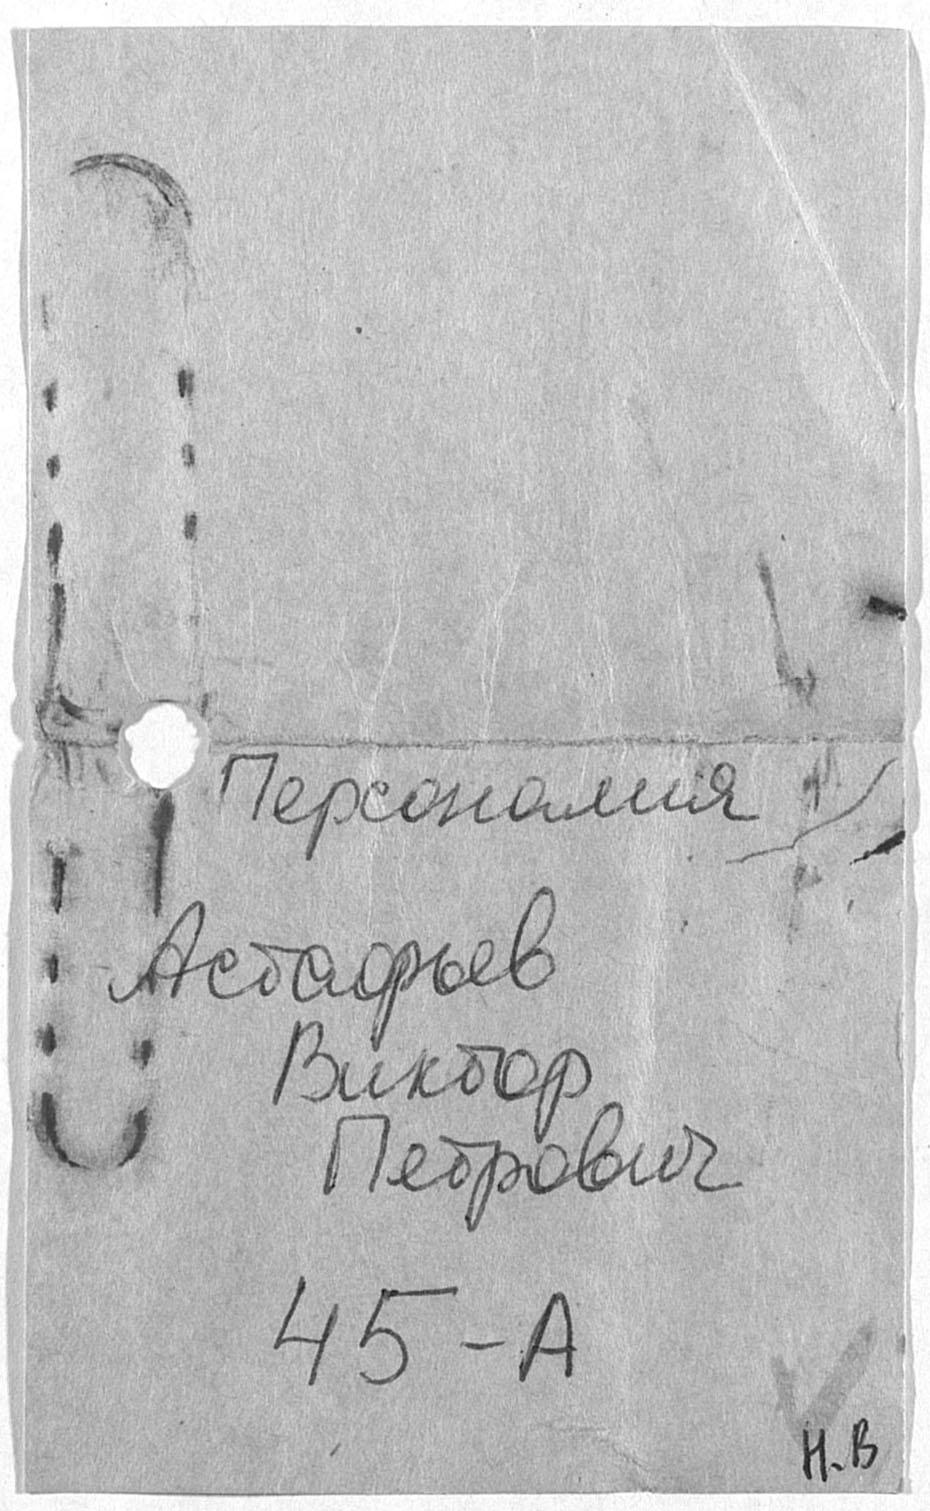 Персоналия
Астафьев
Виктор
Петрович
45-А
Н.В